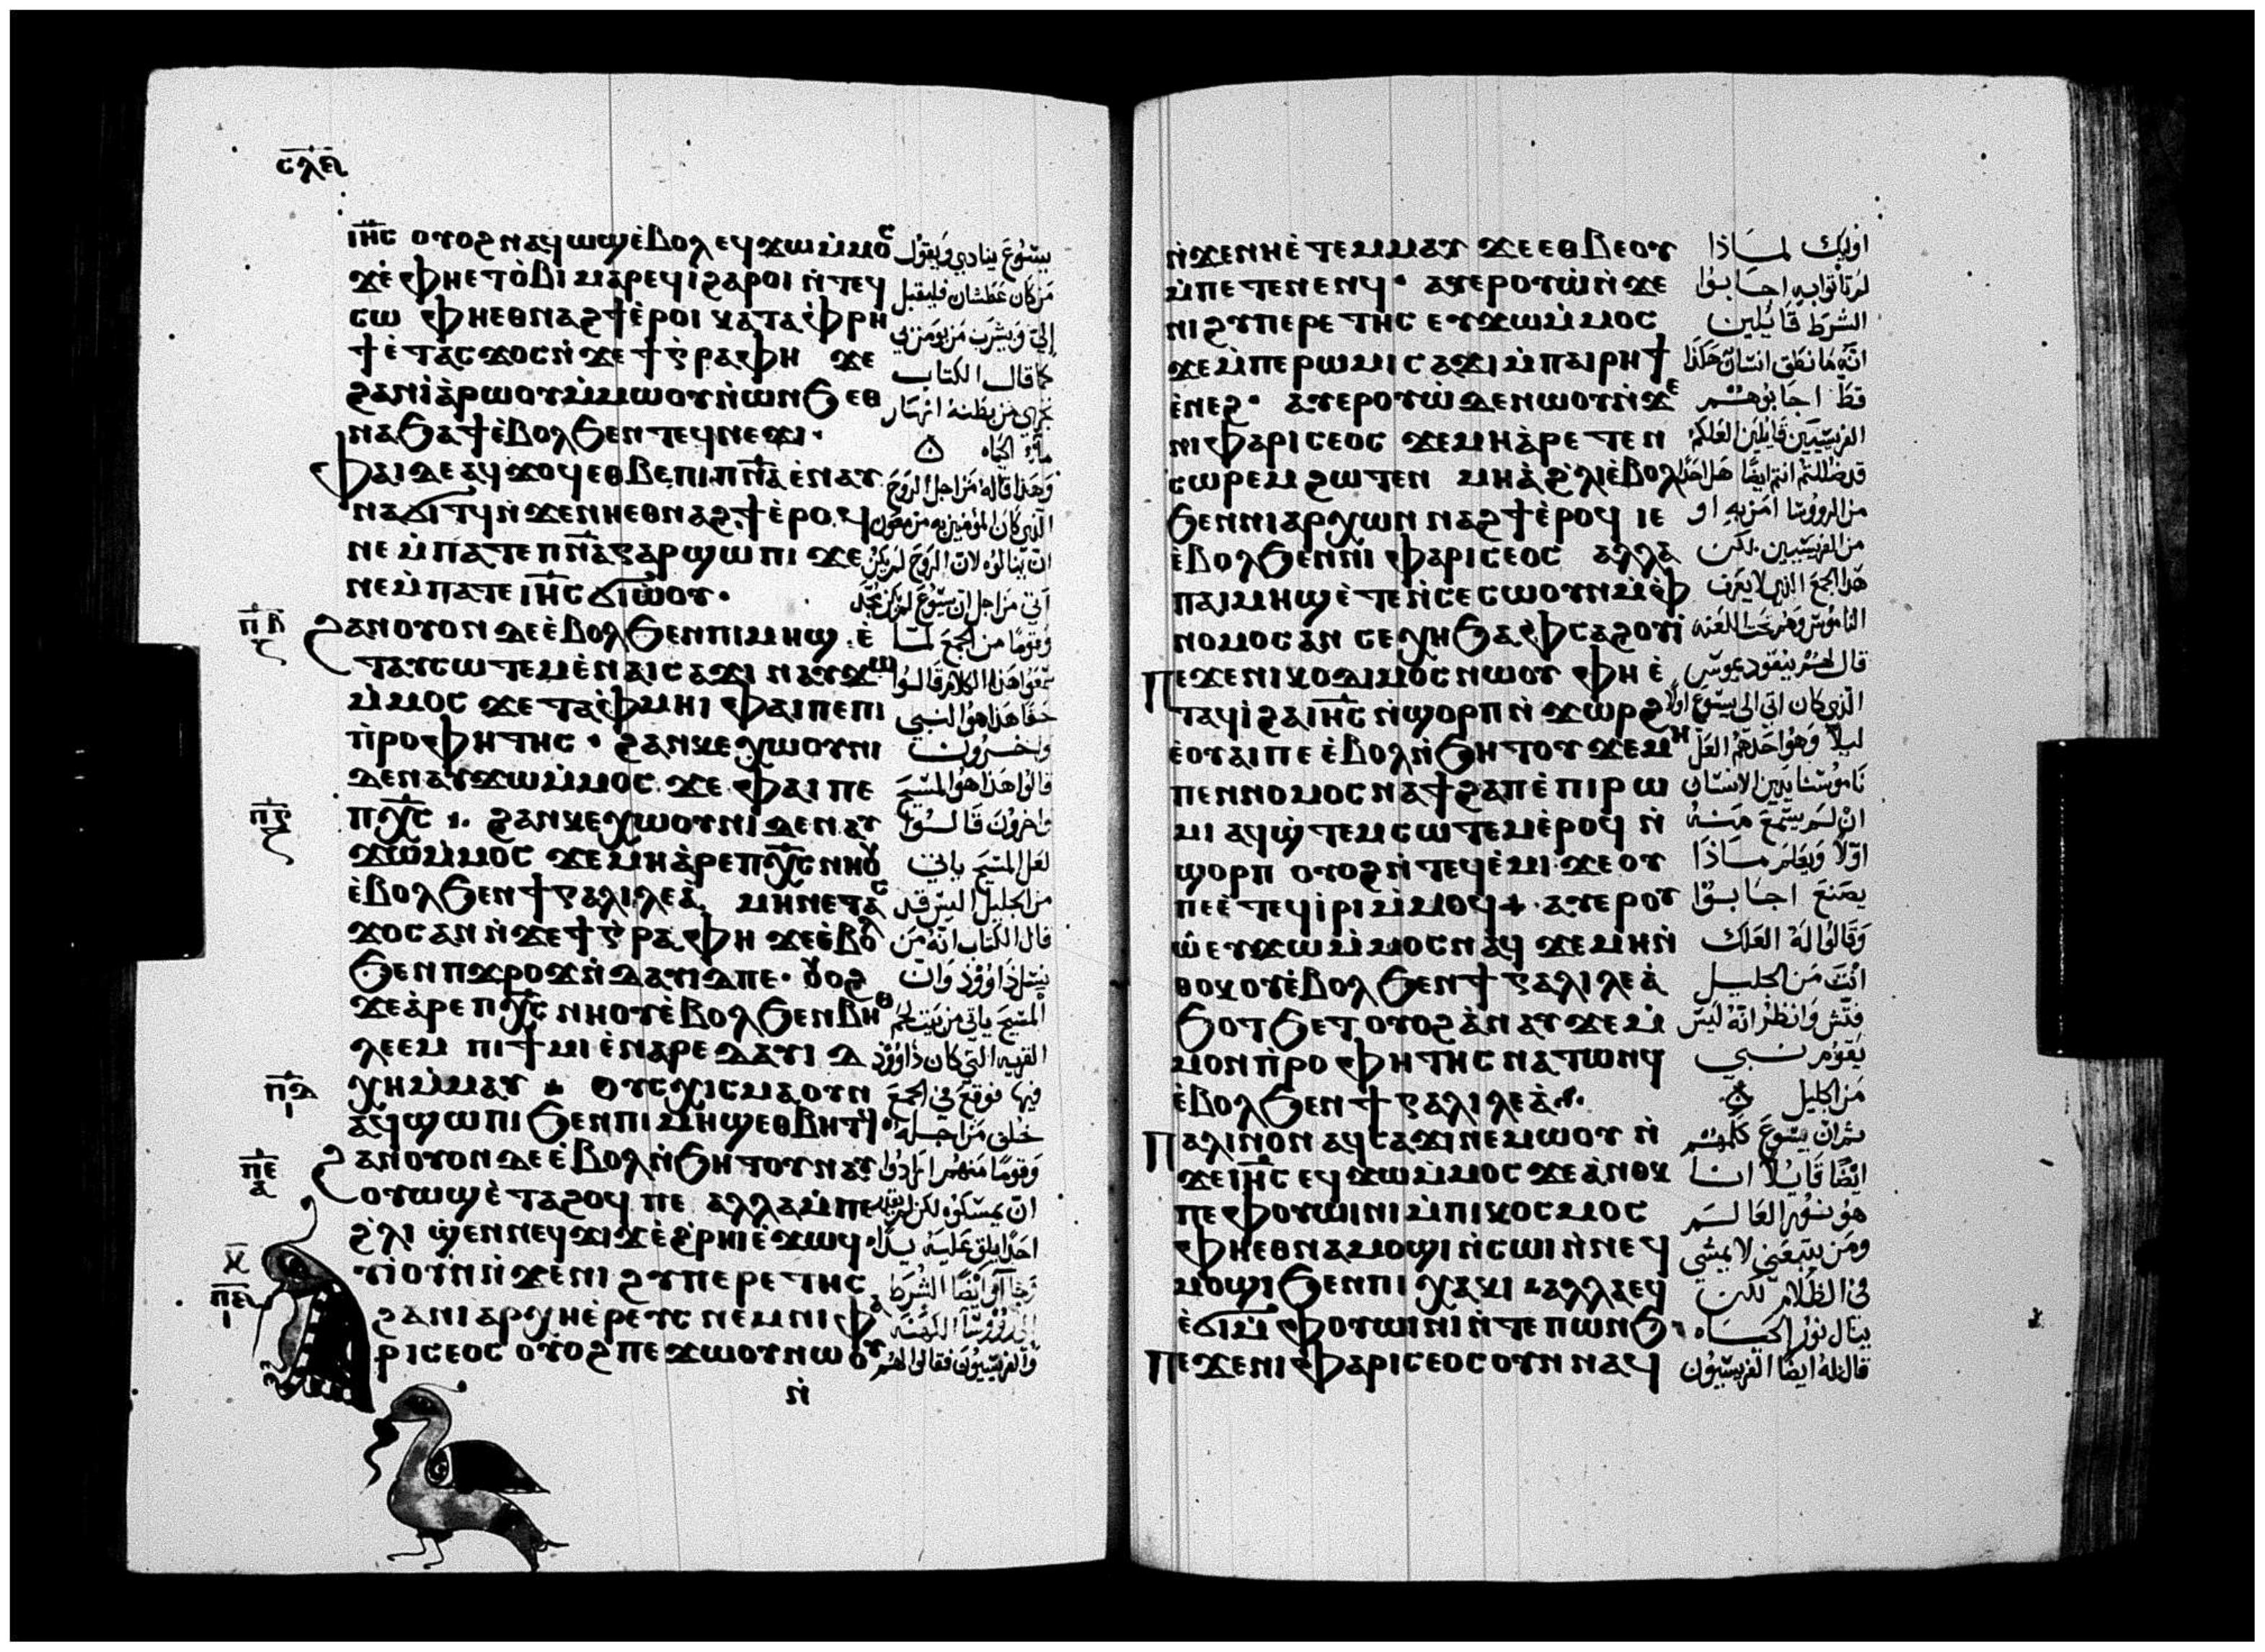 ⲥⲗⲉ
ⲓⲏ̅ⲥ ⲟⲩⲟϩ ⲛⲁϥⲱϣ ⲉ̀ⲃⲟⲗ ⲉϥϫⲱ ⲙ̀ⲙⲟⲥ
ϫⲉ ⲫⲏⲉⲧⲟ̀ⲃⲓ ⲙⲁⲣⲉϥⲓ̀ ϩⲁⲣⲟⲓ ⲛ̀ⲧⲉϥ
ⲥⲱ ⲫⲏⲉⲑⲛⲁϩϯ ⲉ̀ⲣⲟⲓ ⲕⲁⲧⲁ ⲫⲣⲏ
ϯ ⲉ̀ⲧⲁⲥϫⲟⲥ ⲛ̀ϫⲉ ϯⲅⲣⲁⲫⲏ ϫⲉ
ϩⲁⲛⲓⲁ̀ⲣⲱⲟⲩ ⲙ̀ⲙⲱⲟⲩ ⲛ̀ⲱⲛϧ ⲉⲑ
ⲛⲁϧⲁϯ ⲉ̀ⲃⲟⲗ ϧⲉⲛ ⲧⲉϥⲛⲉϫⲓ·
ⲫⲁⲓ ⲇⲉ ⲁϥϫⲟϥ ⲉⲑⲃⲉ ⲡⲓⲡⲛ̅ⲁ ⲉ̀ⲛⲁⲩ
ⲛⲁϭⲓⲧϥ ⲛ̀ϫⲉ ⲛⲏⲉⲑⲛⲁϩϯ ⲉ̀ⲣⲟϥ
ⲛⲉ ⲙ̀ⲡⲁⲧⲉ ⲡⲛ̅ⲁ ⲅⲁⲣ ϣⲱⲡⲓ ϫⲉ
ⲛⲉ ⲙ̀ⲡⲁⲧⲉ ⲓⲏ̅ⲥ ϭⲓⲱ̀ⲟⲩ·
ⲡⲃ
ϩⲁⲛⲟⲩⲟⲛ ⲇⲉ ⲉ̀ⲃⲟⲗ ϧⲉⲛ ⲡⲓⲙⲏϣ ⲉ̀
ⲧⲁⲩⲥⲱⲧⲉⲙ ⲉ̀ⲛⲁⲓⲥⲁϫⲓ ⲛⲁⲩϫⲱ
ⲙ̀ⲙⲟⲥ ϫⲉ ⲧⲁⲫⲙⲏⲓ ⲫⲁⲓ ⲡⲉ ⲡⲓ
ⲡ̀ⲣⲟⲫⲏⲧⲏⲥ· ϩⲁⲛⲕⲉⲭⲱⲟⲩⲛⲓ
ⲇⲉ ⲛⲁⲩϫⲱ ⲙ̀ⲙⲟⲥ ϫⲉ ⲫⲁⲓ ⲡⲉ
ⲡⲅ
ⲡⲭ̅ⲥ ϩⲁⲛⲕⲉⲭⲱⲟⲩⲛⲓ ⲇⲉ ⲛⲁⲩ
ϫⲱ ⲙ̀ⲙⲟⲥ ϫⲉ ⲙⲏ ⲁ̀ⲣⲉ ⲡⲭ̅ⲥ ⲛⲏⲟⲩ
ⲉ̀ⲃⲟⲗ ϧⲉⲛ ϯⲅⲁⲗⲓⲗⲉⲁ̀ ⲙⲏ ⲛⲉⲧⲁⲥ
ϫⲟⲥ ⲁⲛ ⲛ̀ϫⲉ ϯⲅⲣⲁⲫⲏ ϫⲉ ⲉ̀ⲃⲟⲗ
ϧⲉⲛ ⲡϫⲣⲟϫ ⲛ̀ⲇⲁⲩⲓⲇ ⲡⲉ· ⲟⲩⲟϩ
ϫⲉ ⲁ̀ⲣⲉ ⲡⲭ̅ⲥ ⲛⲏⲟⲩ ⲉ̀ⲃⲟⲗ ϧⲉⲛ ⲃⲏⲑ
ⲗⲉⲉⲙ ⲡⲓϯⲙⲓ ⲉ̀ⲛⲁⲣⲉ ⲇⲁⲩⲓⲇ
ⲡⲇ
ⲭⲏ ⲙ̀ⲙⲁⲩ ⲟⲩⲥⲭⲓⲥⲙⲁ ⲟⲩⲛ
ⲁϥϣⲱⲡⲓ ϧⲉⲛ ⲡⲓⲙⲏϣ ⲉⲑⲃⲏⲧϥ·
ⲡⲉ
ϩⲁⲛⲟⲩⲟⲛ ⲇⲉ ⲉ̀ⲃⲟⲗ ⲛ̀ϧⲏⲧⲟⲩ ⲛⲁⲩ
ⲟⲩⲱϣ ⲉ̀ⲧⲁϩⲟϥ ⲡⲉ ⲁⲗⲗⲁ ⲙ̀ⲡⲉ
ϩ̀ⲗⲓ ϣ̀ⲉⲛ ⲛⲉϥϫⲓϫ ⲉ̀ϩ̀ⲣⲏⲓ ⲉ̀ϫⲱϥ·
ⲁⲩⲓ̀ ⲟⲩⲛ ⲛ̀ϫⲉ ⲛⲓϩⲩⲡⲉⲣⲉⲧⲏⲥ
ϩⲁ ⲛⲓⲁⲣⲭⲏⲉ̀ⲣⲉⲩⲥ ⲛⲉⲙ ⲛⲓⲫⲁ
ⲣⲓⲥⲉⲟⲥ ⲟⲩⲟϩ ⲡⲉϫⲱⲟⲩ ⲛⲱⲟⲩ
ⲛ̀
يسوع ينادي ويقول
من كان عطشان فليقبل
الي ويشرب من يومن بي
كما قال الكتاب
تجري من بطنه انهار
ماء الحياه
وهذا قاله من اجل الروح
الذي كان المومنين به مزمعون
ان ينالوه لان الروح لم يكن
اتي من اجل ان يسوع لم يكن تمجد
وقوما من الجمع لما
سمعوا هذا الكلام قالوا
حقا هذا هو النبي
واخرون
قالوا هذا هو المسيح
واخرون قالوا
لعل المسيح ياتي
من الجليل اليس قد
قال الكتاب انه من
نسل داوود وان
المسيح ياتي من بيت لحم
القريه التي كان داوود
فيها فوقع في الجمع
خلف من اجله
وقوما منهم ارادوا
ان يمسكوه لكن لم
احد يلق عليه يدا
وجا اوايضا الشرط
الي رووسا الكهنه
والفريسيون فقالوا لهم
ⲛ̀ϫⲉ ⲛⲏⲉ̀ⲧⲉⲙⲙⲁⲩ ϫⲉ ⲉⲑⲃⲉⲟⲩ
ⲙ̀ⲡⲉⲧⲉⲛⲉⲛϥ· ⲁⲩⲉⲣⲟⲩⲱ̀ ⲛ̀ϫⲉ
ⲛⲓϩⲩⲡⲉⲣⲉⲧⲏⲥ ⲉⲩϫⲱ ⲙ̀ⲙⲟⲥ
ϫⲉ ⲙ̀ⲡⲉ ⲣⲱⲙⲓ ⲥⲁϫⲓ ⲙ̀ⲡⲁⲓⲣⲏϯ
ⲉ̀ⲛⲉϩ· ⲁⲩⲉⲣⲟⲩⲱ̀ ⲇⲉ ⲛⲱⲟⲩ ⲛ̀ϫⲉ
ⲛⲓⲫⲁⲣⲓⲥⲉⲟⲥ ϫⲉ ⲙⲏ ⲁ̀ⲣⲉⲧⲉⲛ
ⲥⲱⲣⲉⲙ ϩⲱⲧⲉⲛ ⲙⲏ ⲁ̀ ϩ̀ⲗⲓ ⲉ̀ⲃⲟⲗ
ϧⲉⲛ ⲛⲓⲁⲣⲭⲱⲛ ⲛⲁϩϯ ⲉ̀ⲣⲟϥ ⲓⲉ
ⲉ̀ⲃⲟⲗ ϧⲉⲛ ⲛⲓⲫⲁⲣⲓⲥⲉⲟⲥ ⲁⲗⲗⲁ
ⲡⲁⲓⲙⲏϣ ⲉ̀ⲧⲉ ⲛ̀ⲥⲉⲥⲱⲟⲩⲛ ⲙ̀ⲫ
ⲛⲟⲙⲟⲥ ⲁⲛ ⲥⲉⲭⲏ ϧⲁ ⲫⲥⲁϩⲟⲩⲓ̀
ⲡⲉϫⲉ ⲛⲓⲕⲟⲇⲓⲙⲟⲥ ⲛⲱⲟⲩ ⲫⲏ ⲉ̀
ⲧⲁϥⲓ̀ ϩⲁ ⲓⲏ̅ⲥ ⲛ̀ϣⲟⲣⲡ ⲛ̀ϫⲱⲣϩ
ⲉ̀ⲟⲩⲁⲓ ⲡⲉ ⲉ̀ⲃⲟⲗ ⲛ̀ϧⲏⲧⲟⲩ ϫⲉ ⲙⲏ
ⲡⲉⲛⲛⲟⲙⲟⲥ ⲛⲁϯϩⲁⲡ ⲉ̀ⲡⲓⲣⲱ
ⲙⲓ ⲁϥϣ̀ⲧⲉⲙⲥⲱⲧⲉⲙ ⲉ̀ⲣⲟϥ ⲛ̀
ϣⲟⲣⲡ ⲟⲩⲟϩ ⲛ̀ⲧⲉϥⲉ̀ⲙⲓ ϫⲉ ⲟⲩ
ⲡⲉ ⲉ̀ⲧⲉϥⲓ̀ⲣⲓ ⲙ̀ⲙⲟϥ· ⲁⲩⲉⲣⲟⲩ
ⲱ̀ ⲉⲩϫⲱ ⲙ̀ⲙⲟⲥ ⲛⲁϥ ϫⲉ ⲙⲏ ⲛ̀
ⲑⲟⲕ ⲟⲩⲉ̀ⲃⲟⲗ ϧⲉⲛ ϯⲅⲁⲗⲓⲗⲉⲁ̀
ϧⲟⲧϧⲉⲧ ⲟⲩⲟϩ ⲁ̀ⲛⲁⲩ ϫⲉ ⲙ̀
ⲙⲟⲛ ⲡ̀ⲣⲟⲫⲏⲧⲏⲥ ⲛⲁⲧⲱⲛϥ
ⲉ̀ⲃⲟⲗ ϧⲉⲛ ϯⲅⲁⲗⲓⲗⲉⲁ̀·
ⲡⲁⲗⲓⲛ ⲟⲛ ⲁϥⲥⲁϫⲓ ⲛⲉⲙⲱⲟⲩ ⲛ̀
ϫⲉ ⲓⲏ̅ⲥ ⲉϥϫⲱ ⲙ̀ⲙⲟⲥ ϫⲉ ⲁ̀ⲛⲟⲕ
ⲡⲉ ⲫⲟⲩⲱⲓⲛⲓ ⲙ̀ⲡⲓⲕⲟⲥⲙⲟⲥ
ⲫⲏⲉⲑⲛⲁⲙⲟϣⲓ ⲛ̀ⲥⲱⲓ ⲛ̀ⲛⲉϥ
ⲙⲟϣⲓ ϧⲉⲛ ⲡⲓⲭⲁⲕⲓ ⲁⲗⲗⲁ ⲉϥ
ⲉ̀ϭⲓ ⲙ̀ⲫⲟⲩⲱⲓⲛⲓ ⲛ̀ⲧⲉ ⲡⲱⲛϧ·
ⲡⲉϫⲉ ⲛⲓⲫⲁⲣⲓⲥⲉⲟⲥ ⲟⲩⲛ ⲛⲁϥ
اوليك لماذا
لم تاتوا به اجابوا
الشرط قايلين
انه ما نطق انسان هكذا
قط اجابوهم
الفريسيين قايلين العلكم
قد ضللتم انتم ايضا هل احدا
من الرووسا امن به او
من الفريسيين لكن
هذا الجمع الذي لا يعرف
الناموس وهم تحت اللعنه
قال لهم نيقوديموس
الذي كان اتي الي يسوع اولا
ليلا وهو احدهم العل
ناموسنا يدين الانسان
ان لم يسمع منه
اولا ويعلم ماذا
يصنع اجابوا
وقالوا له العلك
انت من الجليل
فتش وانظر انه ليس
يقوم نبي
من الجليل
ثم ان يسوع كلمهم
ايضا قايلا انا
هو نور العالم
ومن يتبعني لا يمشي
في الظلام لكن
ينال نور الحياه
قال له ايضا الفريسيون